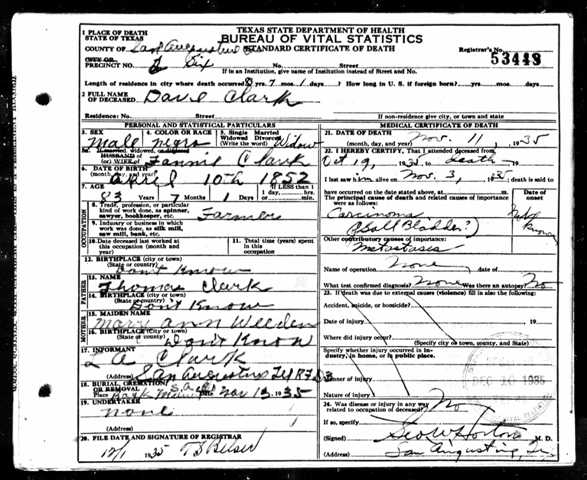 TEXAS STATE DEPARTMENT OF HEALTH
BUREAU OF VITAL STATISTICS
STANDARD CERTIFICATE OF DEATH
1 PLACE OF DEATH
STATE OF TEXAS
COUNTY OF San Augustine
CITY OR
PRECINCT NO. Six No. Street
Registrar's No.
53443
If in Institution, give name of Institution instead of Street and No.
Length of residence in city where death occurred yrs. 7 mos. 1 days ? How long in U. S. if foreign born? yrs. mos. days
2 FULL NAME
OF DECEASED Dave Clark
Residence: No. Street
If non-residence give city, or town and state
PERSONAL AND STATISTICAL PARTICULARS
3. SEX 4. COLOR OR RACE 5. Single Married
Widowed Divorced
(Write the word)
Male negro Widow
5a. If married, widowed, or divorced
HUSBAND of
(or) WIFE of Fannie Clark
6. DATE OF BIRTH
(month, day, year) April 10th 1852
7. AGE If LESS than
1 day,
83 Years 7 Months 1 Days hr. min.
OCCUPATION
8. Trade, profession, or particular
kind of work done, as spinner,
sawyer, bookkeeper, etc. Farmer
9. Industry or business in which
work was done, as silk mill,
saw mill, bank, etc.
10. Date deceased last worked at
this occupation (month and
year)
11. Total time (years) spent in
this occupation
12. BIRTHPLACE (city or town)
(State or country) Dont Know
FATHER
13. NAME
Thomas Clark
14. BIRTHPLACE (city or town)
(State or country) Dont Know
MOTHER
15. MAIDEN NAME
Mary Ann Weeden
16. BIRTHPLACE (city or town)
(State or country) Dont Know
17. INFORMANT
Clark
(Address) San Augustine
18. BURIAL, CREMATION
OR REMOVAL
Place Date Nov 13, 1935
19. UNDERTAKER
none
(Address)
20. FILE DATE AND SIGNATURE OF REGISTRAR
12/1 1935
MEDICAL CERTIFICATE OF DEATH
21. DATE OF DEATH
(month, day, year) Nov. 11, 1935
22. I HEREBY CERTIFY, That I attended deceased from
Oct 19, 1935, to death, 19
I last saw him alive on Nov. 3, 1935 death is said to
have occurred on the date stated above, at m.
The principal cause of death and related causes of importance
were as follows:
Date of
onset
Carcinoma
(Gall Bladder?)
Other contributory causes of importance:
Metastasis
Name of operation None date of
What test confirmed diagnosis? None Was there an autopsy? No
23. If death was due to external causes (violence) fill in also the following:
Accident, suicide, or homicide?
Date of injury 19
Where did injury occur?
(Specify city or town, county, and State)
Specify whether injury occurred in industry, in
home, or in public place.
Manner of injury
Nature of injury
24. Was disease or injury in any way
related to occupation of deceased? No
If so, specify
(Signed) M. D.
San Augustine, Tex